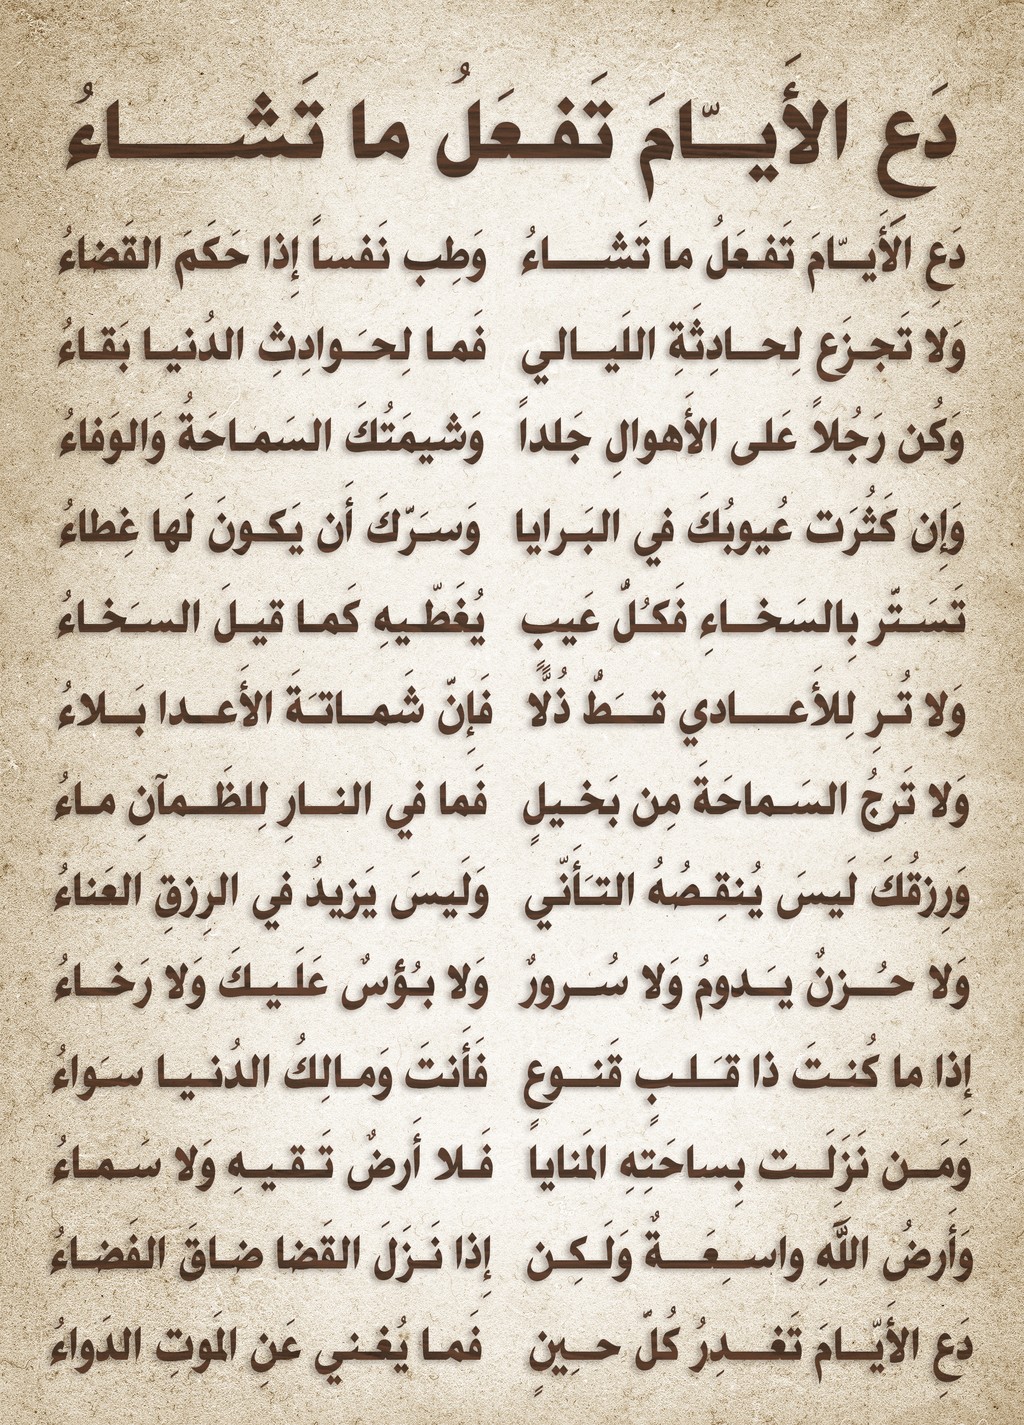 دَع الأَيّامَ تَفعَلُ ما تَشاءُ
دَعِ الأَيّامَ تَفعَلُ ما تَشاءُ وَطِب نَفساً إِذا حَكَمَ القَضاءُ
وَلا تَجزَع لِحادِثَةِ اللَيالي فَما لِحَوادِثِ الدُنيا بَقاءُ
وَكُن رَجُلاً عَلى الأَهوالِ جَلداً وَشيمَتُكَ السَماحَةُ وَالوَفاءُ
وَإِن كَثُرَت عُيوبُكَ في البَرايا وَسَرّكَ أَن يَكونَ لَها غِطاءُ
تَسَتّر بِالسَخاءِ فَكُلُّ عَيبٍ يُغَطّيهِ كَما قيلَ السَخاءُ
وَلا تُرِ لِلأَعادي قَطُّ ذُلًّا فَإِنّ شَماتَةَ الأَعدا بَلاءُ
وَلا تَرجُ السَماحَةَ مِن بَخيلٍ فَما في النارِ لِلظَمآنِ ماءُ
وَرِزقُكَ لَيسَ يُنقِصُهُ التَأَنّي وَلَيسَ يَزيدُ في الرِزقِ العَناءُ
وَلا حُزنٌ يَدومُ وَلا سُرورٌ وَلا بُؤسٌ عَلَيكَ وَلا رَخاءُ
إِذا ما كُنتَ ذا قَلبٍ قَنوعٍ فَأَنتَ وَمالِكُ الدُنيا سَواءُ
وَمَن نَزَلَت بِساحَتِهِ المَنايا فَلا أَرضٌ تَقيهِ وَلا سَماءُ
وَأَرضُ اللَّهِ واسِعَةٌ وَلَكِن إِذا نَزَلَ القَضا ضاقَ الفَضاءُ
دَعِ الأَيّامَ تَغدِرُ كُلّ حِينٍ فَما يُغني عَنِ المَوتِ الدَواءُ